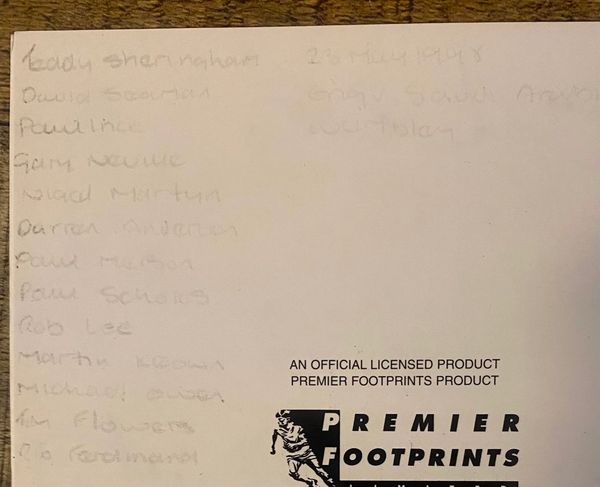 Teddy Sheringham 23 May 1998
David Seaman Eng v Saudi Arabi
Paul Ince Wembley
Gary Neville
Nigel Martyn
Darren Anderton
Paul Merson
Paul Scholes
Rob Lee
Martin Keown
Michael Owen
Tim Flowers
Rio Ferdinand
AN OFFICIAL LICENSED PRODUCT
PREMIER FOOTPRINTS PRODUCT
PREMIER
FOOTPRINTS